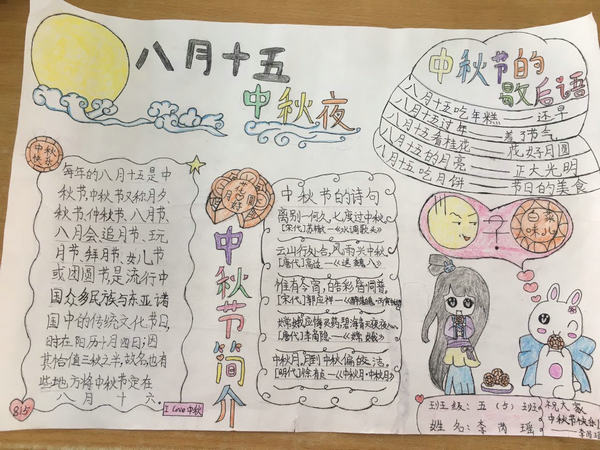 八月十五
中秋夜
中秋节的
歇后语
八月十五吃年糕——还早
八月十五过年——差了节气
八月十五看桂花——花好月圆
八月十五的月亮——正大光明
八月十五吃月饼——节日的美食
中秋
快乐
每年的八月十五是中
秋节,中秋节又称月夕、
秋节、仲秋节、八月节、
八月会、追月节、玩
月节、拜月节、女儿节
或团圆节,是流行中
国众多民族与东亚诸
国中的传统文化节日,
时在阳历十月四日;因
其恰值三秋之半,故名,也有
些地方将中秋节定在
八月十六。
815
I love中秋
花好
月圆
中秋节简介
中秋节的诗句
离别一何久,七度过中秋。
[宋代]苏辙—《水调歌头》
云山行处合,风雨兴中秋。
[唐代]高适—《送魏八》
惟有冷宵,皓彩皆同普。
[宋代]郭应祥
嫦娥应悔偷灵药,碧海青天夜夜心。
[唐代]李商隐—《嫦娥》
中秋月,月到中秋偏皎洁。
[明代]徐有贞—《中秋月·中秋月》
?
百年
味儿
班级:五(5)班
姓名:李芮瑶
祝大家
中秋节快乐!